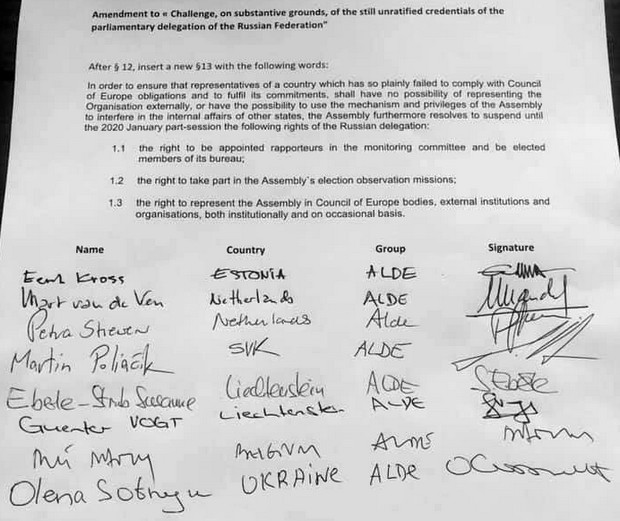 Amendment to « Challenge, on substantive grounds, of the still unratified credentials of the
parliamentary delegation of the Russian Federation"
After § 12, insert a new §13 with the following words:
In order to ensure that representatives of a country which has so plainly failed to comply with Council
of Europe obligations and to fulfil its commitments, shall have no possibility of representing the
Organisation externally, or have the possibility to use the mechanism and privileges of the Assembly
to interfere in the internal affairs of other states, the Assembly furthermore resolves to suspend until
the 2020 January part-session the following rights of the Russian delegation:
1.1 the right to be appointed rapporteurs in the monitoring committee and be elected
members of its bureau;
1.2 the right to take part in the Assembly's election observation missions;
1.3 the right to represent the Assembly in Council of Europe bodies, external institutions and
organisations, both institutionally and on occasional basis.
Name Country Group Signature
Eerik Kross ESTONIA ALDE
Mart van de Ven Netherlands ALDE
Petra Netherlands Alde
Martin Poliačik SVK ALDE
Ebele-Strub Susanne Liechtenstein ALDE
Guenter VOGT Liechtenstein ALDE
BELGIUM ALDE
Olena UKRAINE ALDE